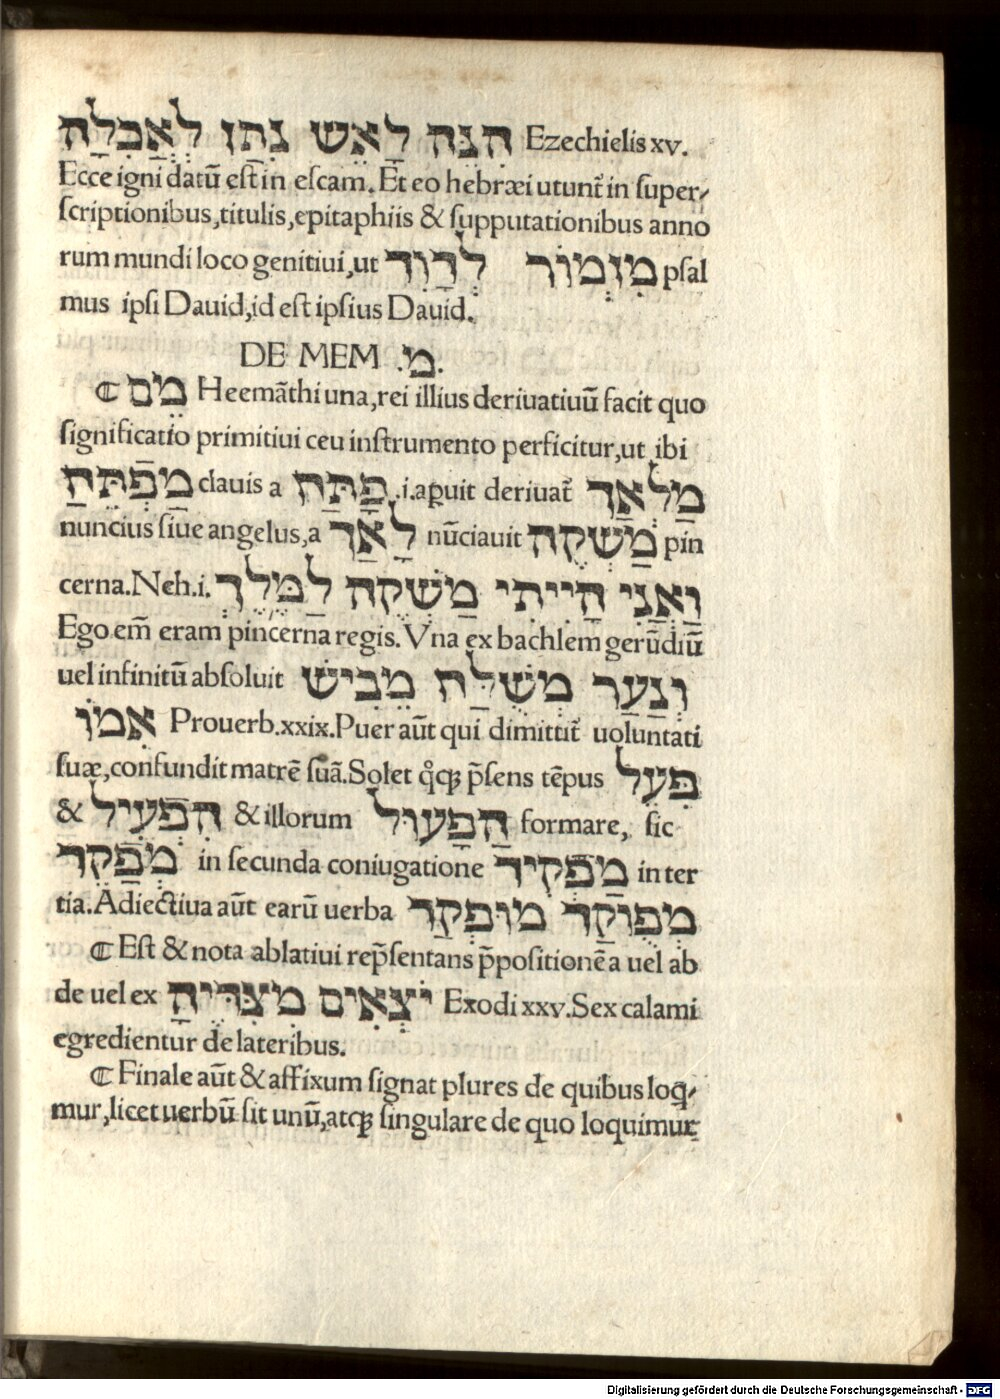 הִנֵּה לָאֵשׁ נִתַּן לְאָכְלָה Ezechielis xv.
Ecce igni datū est in eſcam. Et eo hebræi utunt̄ in ſuper⸗
ſcriptionibus, titulis, epitaphiis & ſupputationibus anno
rum mundi loco genitiui, ut מִזְמוֹר לְדָוִד pſal
mus ipſi Dauid, id eſt ipſius Dauid.
DE MEM .מ.
¶ מֵם Heemāthi una, rei illius deriuatiuū facit quo
ſignificatio primitiui ceu inſtrumento perficitur, ut ibi
מַפְתֵּחַ clauis a פָּתַח .i. apuit deriuat̄ מַלְאָךְ
nuncius ſiue angelus, a לָאַךְ nūciauit מַשְׁקֶה pin
cerna. Neh. i. וַאֲנִי הָיִיתִי מַשְׁקֶה לַמֶּלֶךְ
Ego em̄ eram pincerna regis. Vna ex bachlem gerūdiū
uel infinitū abſoluit וְנַעַר מְשֻׁלָּח מֵבִישׁ
אִמּוֹ Prouerb. xxix. Puer aūt qui dimittit̄ uoluntati
ſuæ, confundit matrē ſuā. Solet qͦqꝫ p̄ſens tēpus פִּעֵל
& הִפְעִיל & illorum הָפְעוּל formare, ſic
מְפַקֵּד in ſecunda coniugatione מַפְקִיד in ter
tia. Adiectiua aūt earū uerba מְפוּקַּד מוּפְקַד
¶ Eſt & nota ablatiui rep̄ſentans p̄poſitionē a uel ab
de uel ex יֹצְאִים מִצִּדֶּיהָ Exodi xxv. Sex calami
egredientur de lateribus.
¶ Finale aūt & affixum ſignat plures de quibus loq̄⸗
mur, licet uerbū ſit unū, atqꝫ ſingulare de quo loquimur
Digitalisierung gefördert durch die Deutsche Forschungsgemeinschaft - DFG